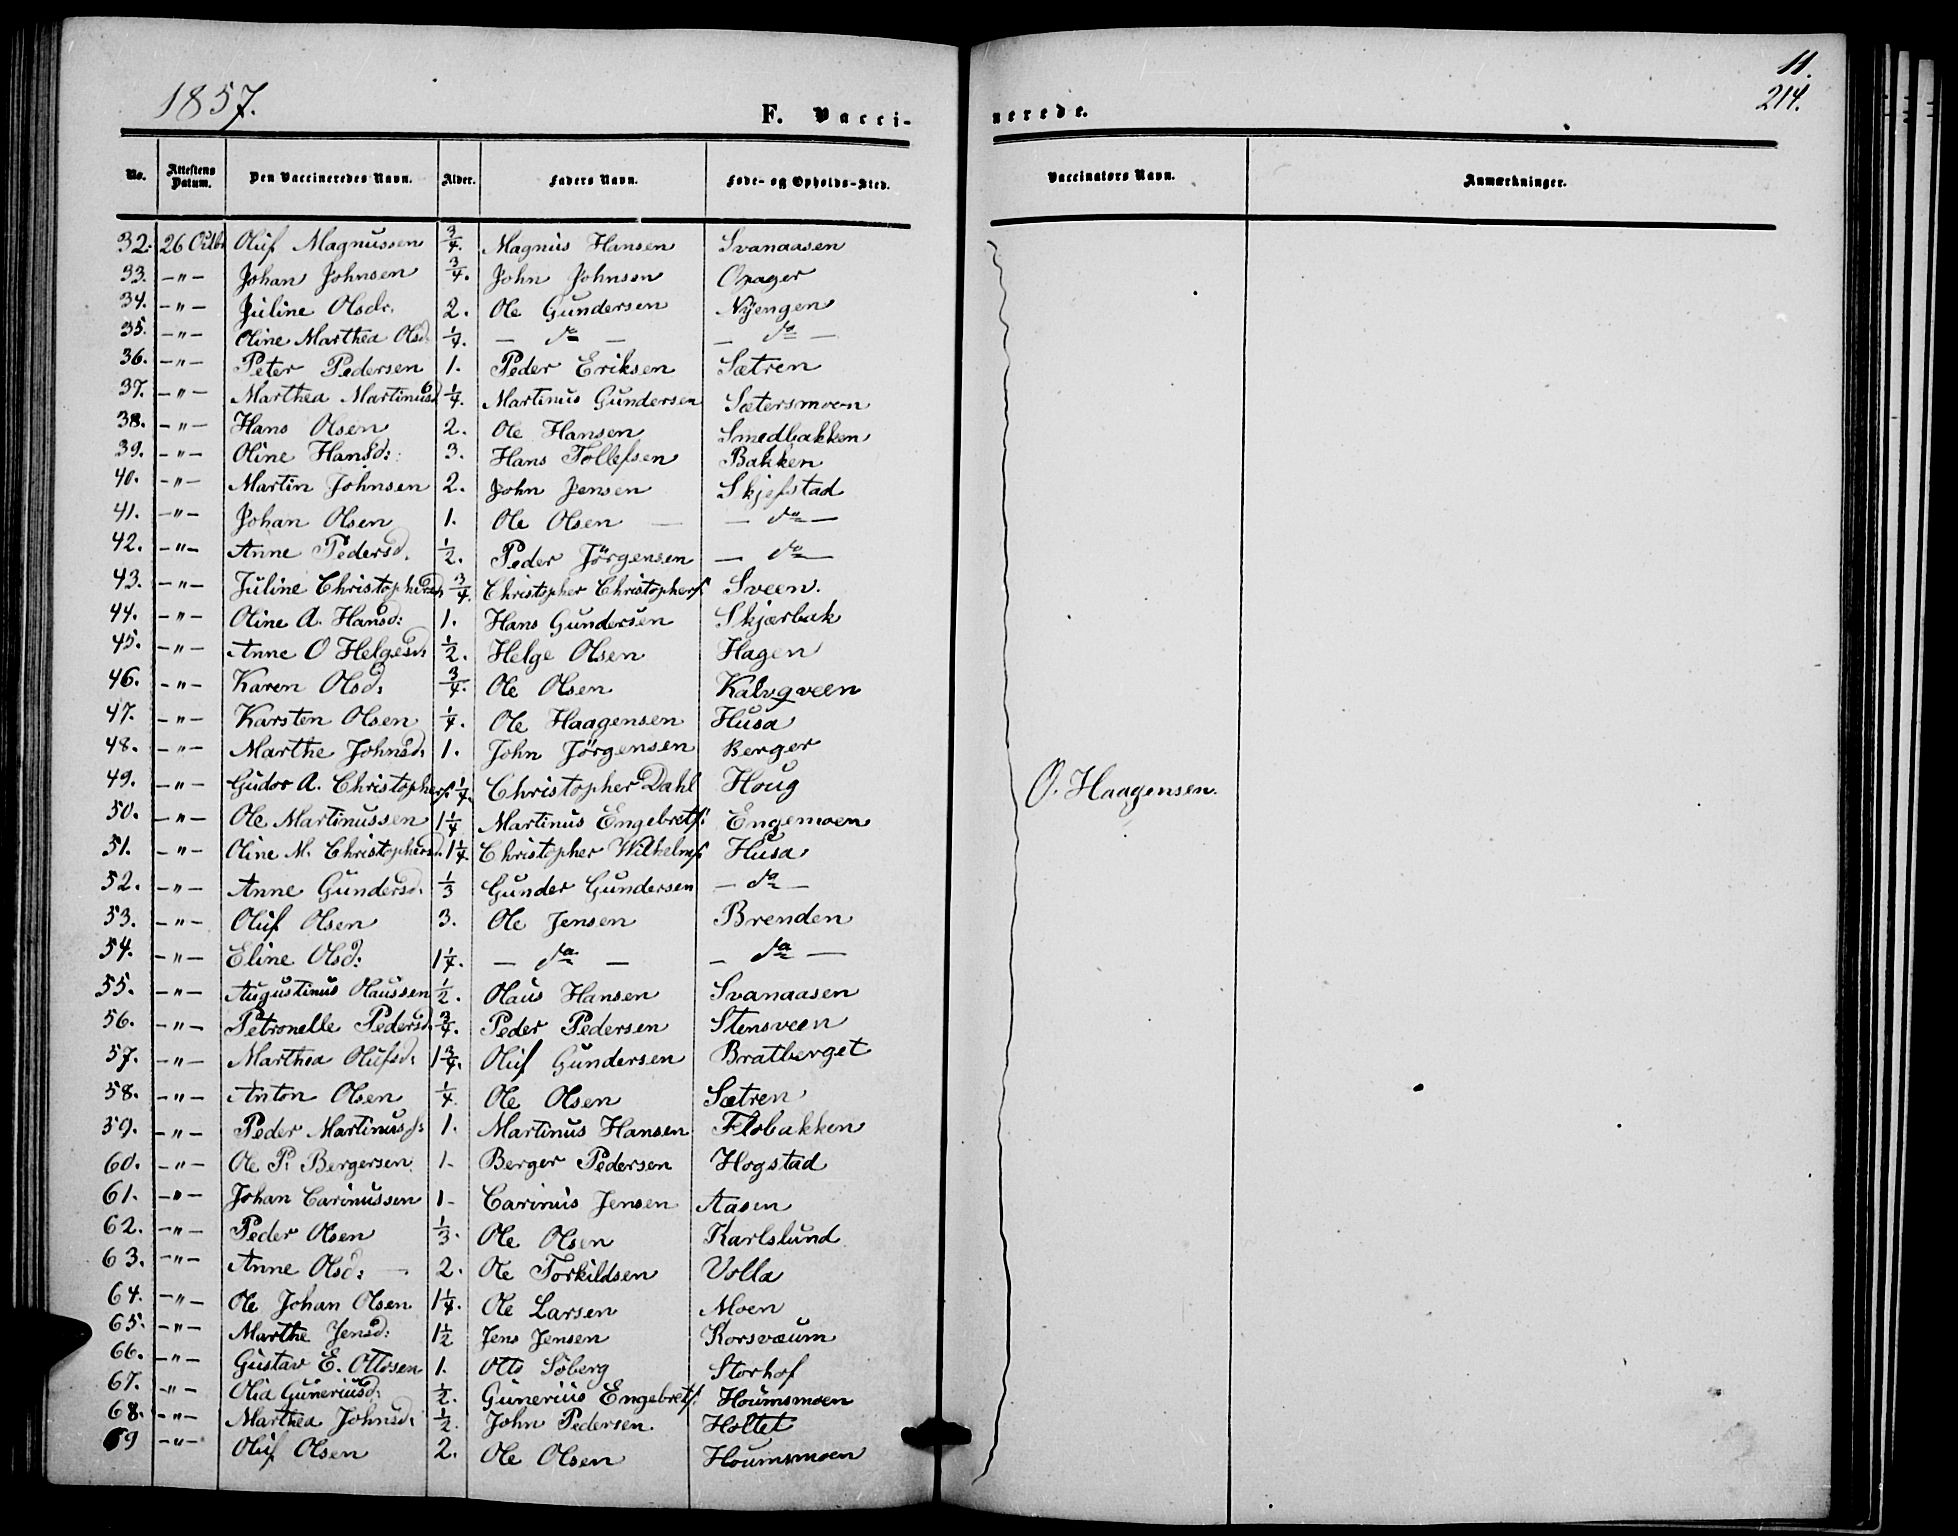 1857.
F. Vacci-
No. Attestens Datum. Den Vaccineredes Navn. Alder. Faders Navn. Føde- og Opholds-Sted.
32. 26 Octb. Oluf Magnussen 3/4. Magnus Hansen Svanaasen
33. -"- Johan Johnsen 3/4. John Johnsen Opager
34. -"- Juline Olsdr. 2. Ole Gundersen Nÿengen
35. -"- Oline Marthea Olsd. 1/4. - do - - do -
36. -"- Peter Pedersen 1. Peder Eriksen Sætren
37. -"- Marthea Martinusd 1/4. Martinus Gundersen Sætersmoen
38. -"- Hans Olsen 2. Ole Hansen Smedbakken
39. -"- Oline Hansd: 3. Hans Tollefsen Bakken
40. -"- Martin Johnsen 2. John Jensen Skjefstad
41. -"- Johan Olsen 1. Ole Olsen - - do -
42. -"- Anne Pedersd. 1/2. Peder Jörgensen - do -
43. -"- Juline Christophersd 3/4. Christopher Christophers. Sveen.
44. -"- Oline A. Hansd: 1. Hans Gundersen Skjærbak
45. -"- Anne O Helgesd. 1/2. Helge Olsen Hagen
46. -"- Karen Olsd: 3/4. Ole Olsen Kalvqveen
47. -"- Karsten Olsen 1/4. Ole Haagensen Husa
48. -"- Marthe Johnsd. 1. John Jörgensen Berger
49. -"- Gudor A. Christophers. 1/4. Christopher Dahl Houg
50. -"- Ole Martinussen 1 1/4 Martinus Engebrets: Engemoen
51. -"- Oline M. Christophersd. 1 1/4. Christopher Wilhelms. Husa
52. -"- Anne Gundersd. 1/3 Gunder Gundersen - do -
53. -"- Oluf Olsen 3. Ole Jensen Brenden
54. -"- Eline Olsd: 1 1/4. - do - - do -
55. -"- Augustinus Olaussen 1/2. Olaus Hansen Svanaasen
56. -"- Petronelle Pedersd. 3/4. Peder Pedersen Stensveen
57. -"- Marthea Olufsd: 1 3/4. Oluf Gundersen Bratberget
58. -"- Anton Olsen 1/4. Ole Olsen Sætren
59. -"- Peder Martinuss: 1. Martinus Hansen Flobakken
60. -"- Ole P. Bergersen 1- Berger Pedersen Hogstad
61. -"- Johan Carinussen 1- Carinus Jensen Aasen
62. -"- Peder Olsen 1/3. Ole Olsen Karlslund
63. -"- Anne Olsd: - 2. Ole Torkildsen Volla
64. -"- Ole Johan Olsen 1 1/4. Ole Larsen Moen
65. -"- Marthe Jensd: 1 1/2 Jens Jensen Korsvæum
66. -"- Gustav E. Ottosen 1. Otto Soberg Storhof
67. -"- Olia Guneriusd: 1/2. Gunerius Engebrets. Houmsmoen
68. -"- Marthea Johnsd: 1/2. John Pedersen. Holtet
69 -"- Oluf Olsen 2. Ole Olsen Houmsmoen
11.
214.
nerede.
Vaccinators Navn. Anmærkninger.
O. Haagensen.